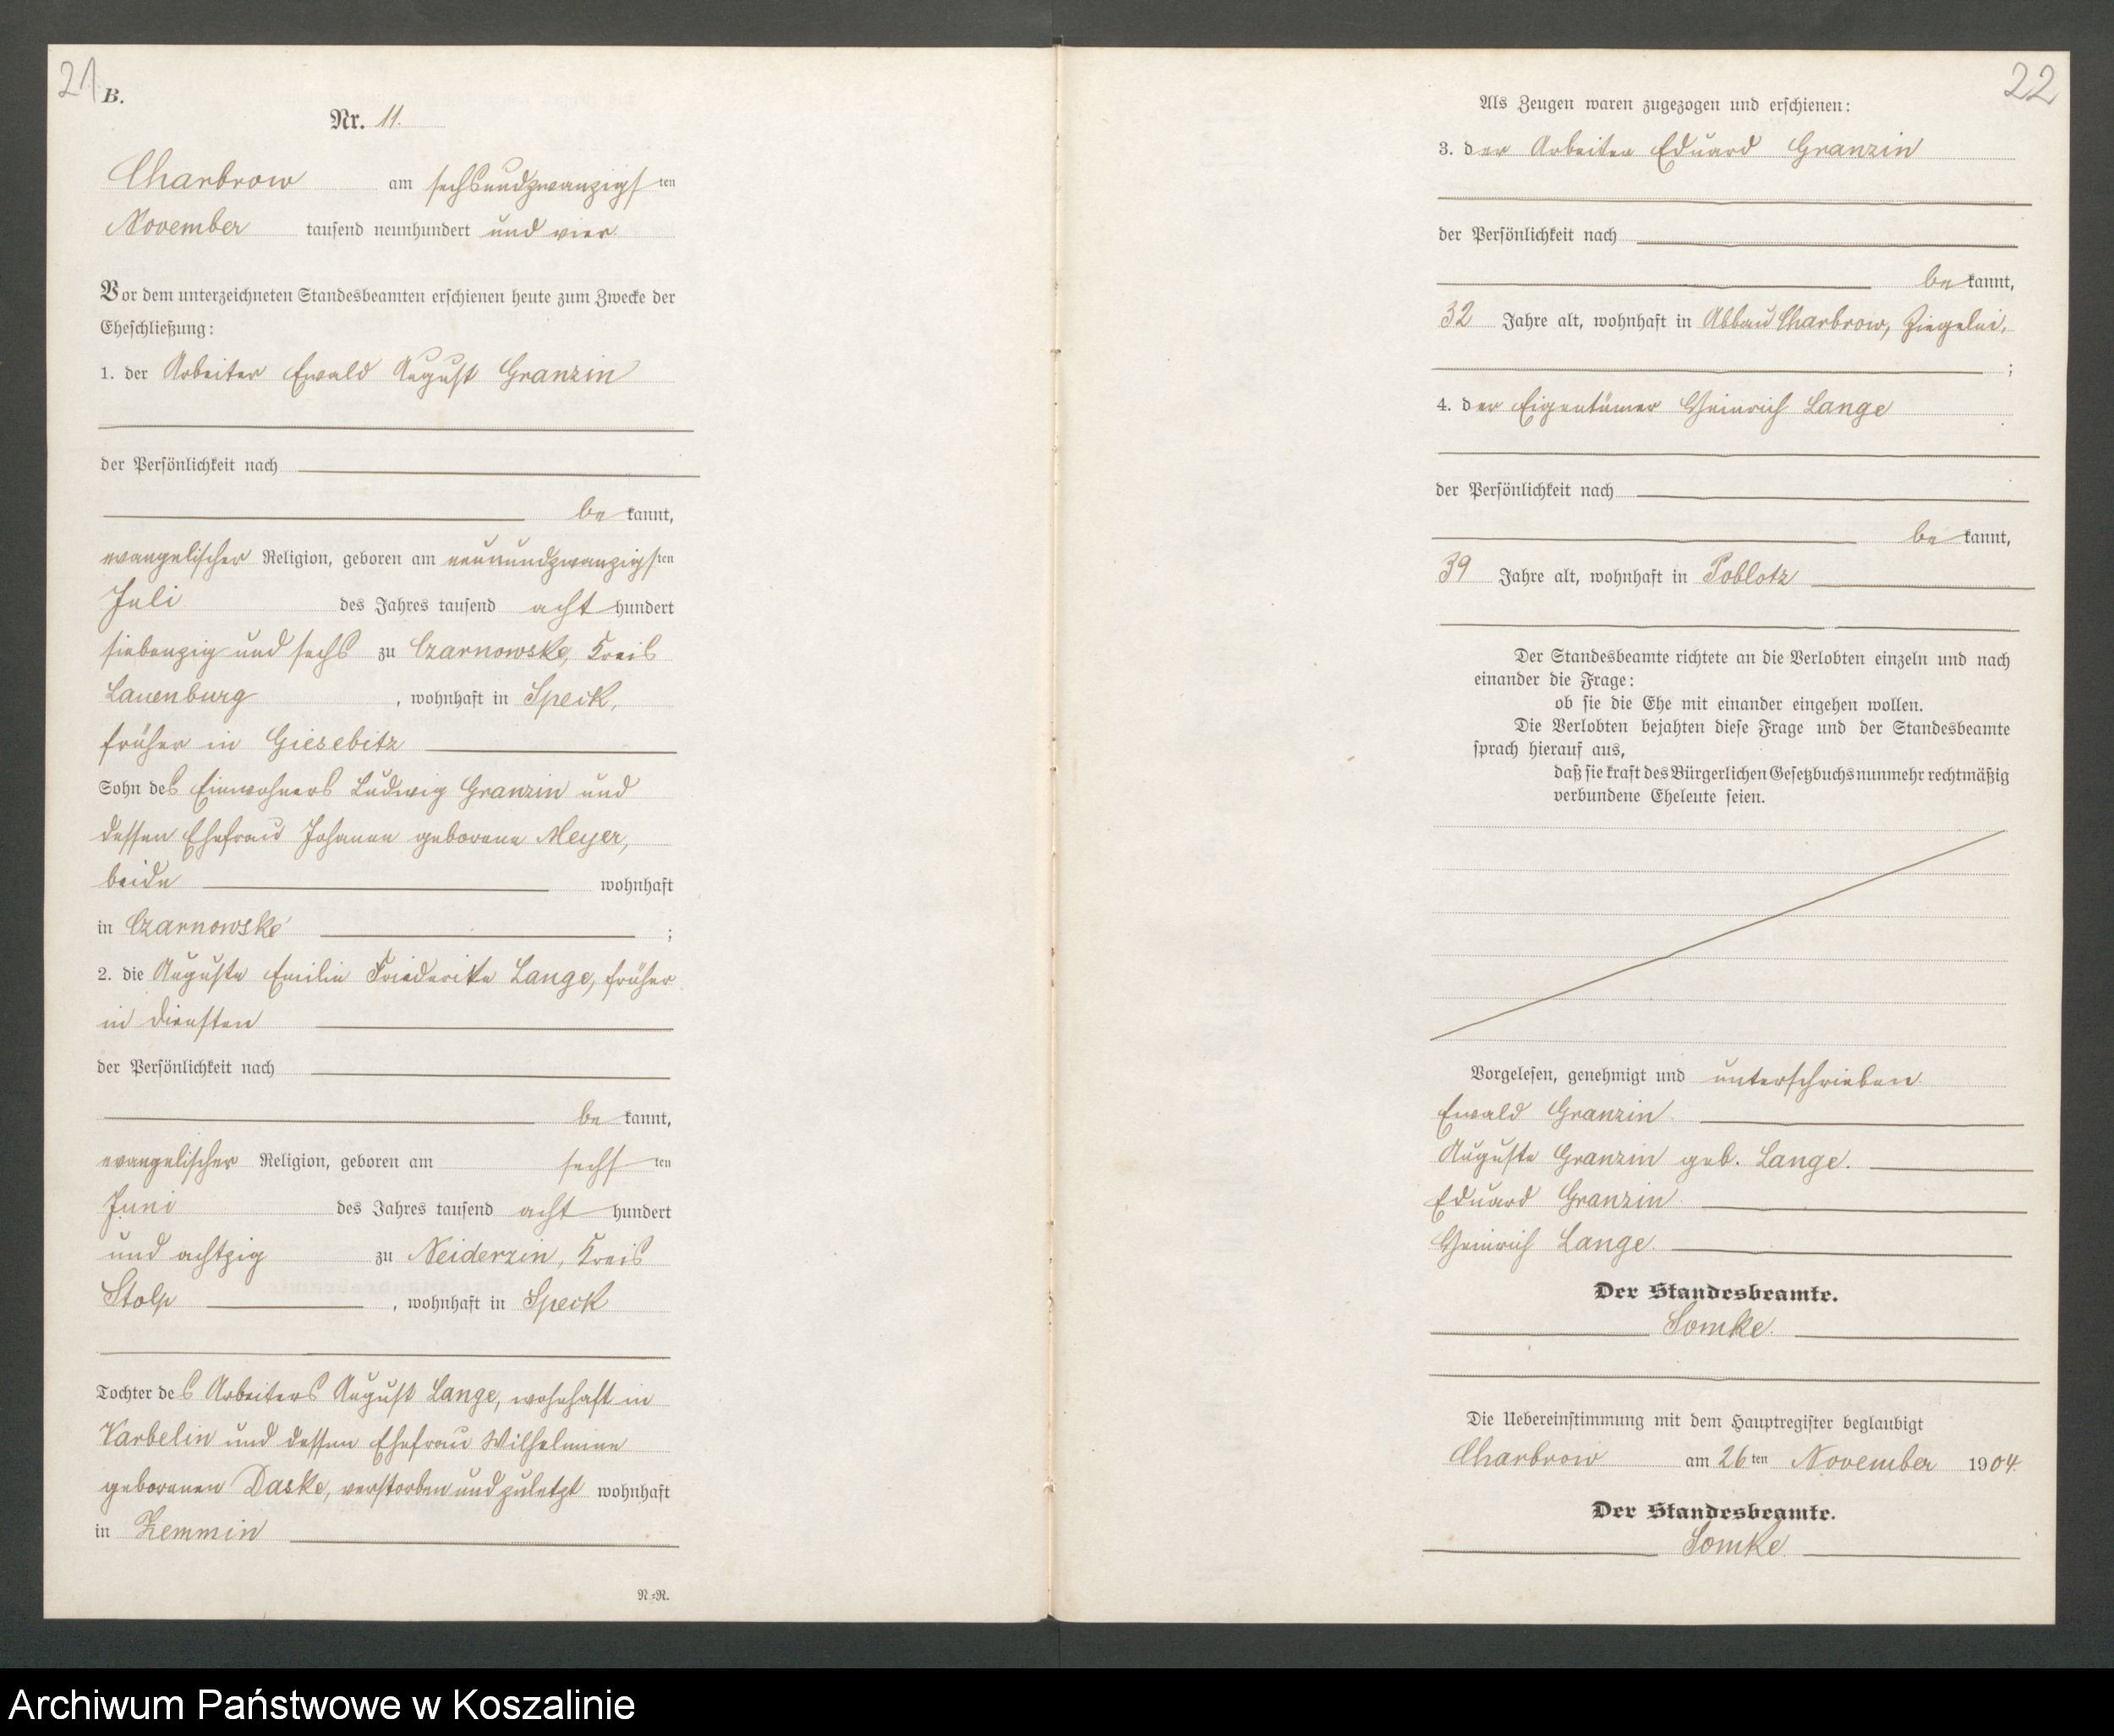 21
B.
Nr. 11.
Charbrow am sechsundzwanzigsten
November tausend neunhundert und vier.
Vor dem unterzeichneten Standesbeamten erschienen heute zum Zwecke der
Eheschließung:
1. der Arbeiter Ewald August Granzin
der Persönlichkeit nach
be kannt,
evangelischer Religion, geboren am neunundzwanzigsten
Juli des Jahres tausend acht hundert
siebenzig und sechs zu Czarnowske, Kreis
Lauenburg, wohnhaft in Speck,
früher in Giesebitz
Sohn des Einwohners Ludwig Granzin und
dessen Ehefrau Johanne geborene Meyer,
beide wohnhaft
in Czarnowske ;
2. die Auguste Emilie Friederike Lange, früher
in Diensten
der Persönlichkeit nach
be kannt,
evangelischer Religion, geboren am sechsten
Juni des Jahres tausend acht hundert
und achtzig zu Neiderzin, Kreis
Stolp, wohnhaft in Speck
Tochter des Arbeiters August Lange, wohnhaft in
Varbelin und dessen Ehefrau Wilhelmine
geborenen Daske, verstorben und zuletzt wohnhaft
in Zemmin
N.=R.
22
Als Zeugen waren zugezogen und erschienen:
3. der Arbeiter Eduard Granzin
der Persönlichkeit nach
be kannt,
32 Jahre alt, wohnhaft in Abbau Charbrow, Ziegelei,
;
4. der Eigentümer Heinrich Lange
der Persönlichkeit nach
be kannt,
39 Jahre alt, wohnhaft in Poblotz
Der Standesbeamte richtete an die Verlobten einzeln und nach
einander die Frage:
ob sie die Ehe mit einander eingehen wollen.
Die Verlobten bejahten diese Frage und der Standesbeamte
sprach hierauf aus,
daß sie kraft des Bürgerlichen Gesetzbuchs nunmehr rechtmäßig
verbundene Eheleute seien.
Vorgelesen, genehmigt und unterschrieben.
Ewald Granzin.
Auguste Granzin geb. Lange.
Eduard Granzin.
Heinrich Lange.
Der Standesbeamte.
Somke.
Die Uebereinstimmung mit dem Hauptregister beglaubigt
Charbrow am 26ten November 1904.
Der Standesbeamte.
Somke
Archiwum Państwowe w Koszalinie